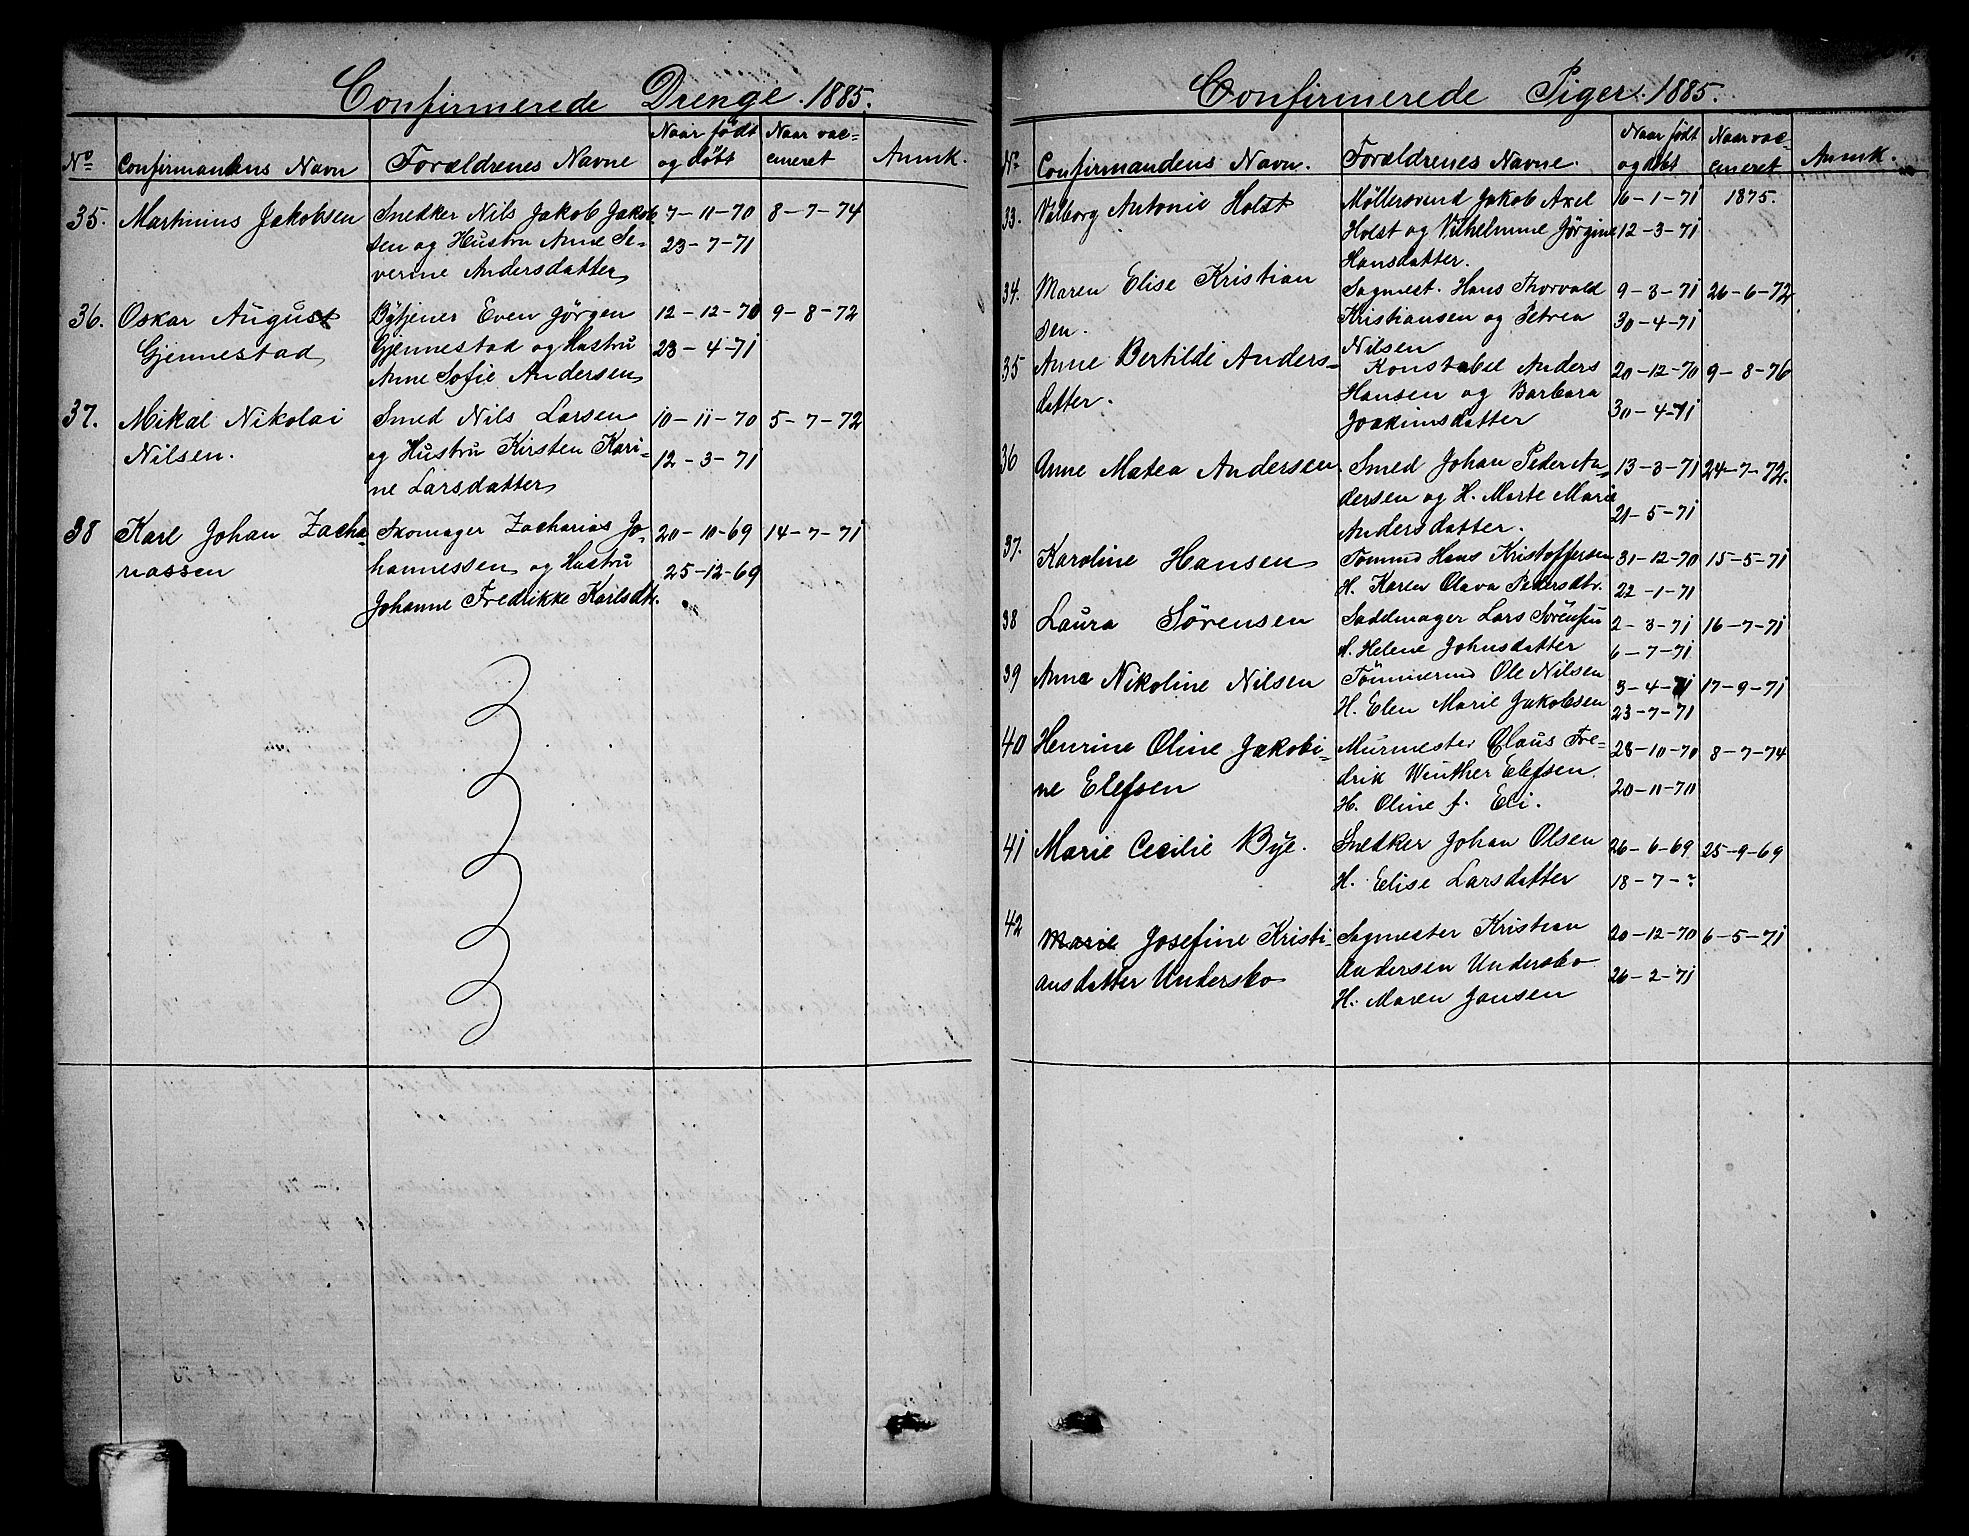 Confirmerede Drenge. 1885.
No Confirmandens Navn Forældrenes Navne Naar født og døbt Naar vaccineret Anmk.
35. Martinius Jakobsen Snedker Nils Jakob Jakob- 7-11-70 8-7-74
sen og Hustru Anne Se- 23-7-71
verine Andersdatter
36. Oskar August Bytjener Even Jørgen 12-12-70 9-8-72
Gjennestad Gjennestad og Hustru 23-4-71
Anne Sofie Andersen
37. Mikal Nikolai Smed Nils Larsen 10-11-70 5-7-72
Nilsen. og Hustru Kirsten Kari- 12-3-71
ne Larsdatter
38 Karl Johan Zacha- Skomager Zacharias Jo- 20-10-69 14-7-71
riassen hannessen og Hustru 25-12-69
Johanne Fredrikke Karlsdtr.
Confirmerede Piger. 1885.
No Confirmandens Navn. Forældrenes Navne. Naar født og døbt Naar vaccineret Anmk.
33. Valborg Antonie Holst Møllersvend Jakob Axel 16-1-71 1875.
Holst og Vilhelmine Jørgine 12-3-71
Hansdatter.
34. Maren Elise Kristian Sagmest. Hans Thorvald 9-3-71 26-6-72
sen. Kristiansen og Petrea 30-4-71
Nilsen
35 Anne Bertilde Anders- Konstabel Anders 20-12-70 9-8-76
datter. Hansen og Barbara 30-4-71
Joakimsdatter
36 Anne Matea Andersen Smed Johan Peder An- 13-3-71 24-7-72.
dersen og H. Marte Marie 21-5-71
Andersdatter.
37. Karoline Hansen Tømmd Hans Kristoffersen 31-12-70 15-5-71
H. Karen Olava Pedersdtr. 22-1-71
38 Laura Sørensen Sadelmager Lars Sørensen 2-3-71 16-7-71
H. Helene Johnsdatter 6-7-71
39 Anna Nikoline Nilsen Tømmermd Ole Nilsen 3-4-71 17-9-71
H. Elen Marie Jakobsen 23-7-71
40 Henrine Oline Jakobi- Murmester Claus Fre- 28-10-70 8-7-74
ne Elefsen drik Winther Elefsen 20-11-70
H. Oline f. Eli.
41 Marie Cecilie Bye. Snedker Johan Olsen 26-6-69 25-9-69
H. Elise Larsdatter 18-7-?
42 Marie Josefine Kristi- Sagmester Kristian 20-12-70 6-5-71
ansdatter Undersbo Andersen Undersbo 26-2-71
H. Maren Jansen